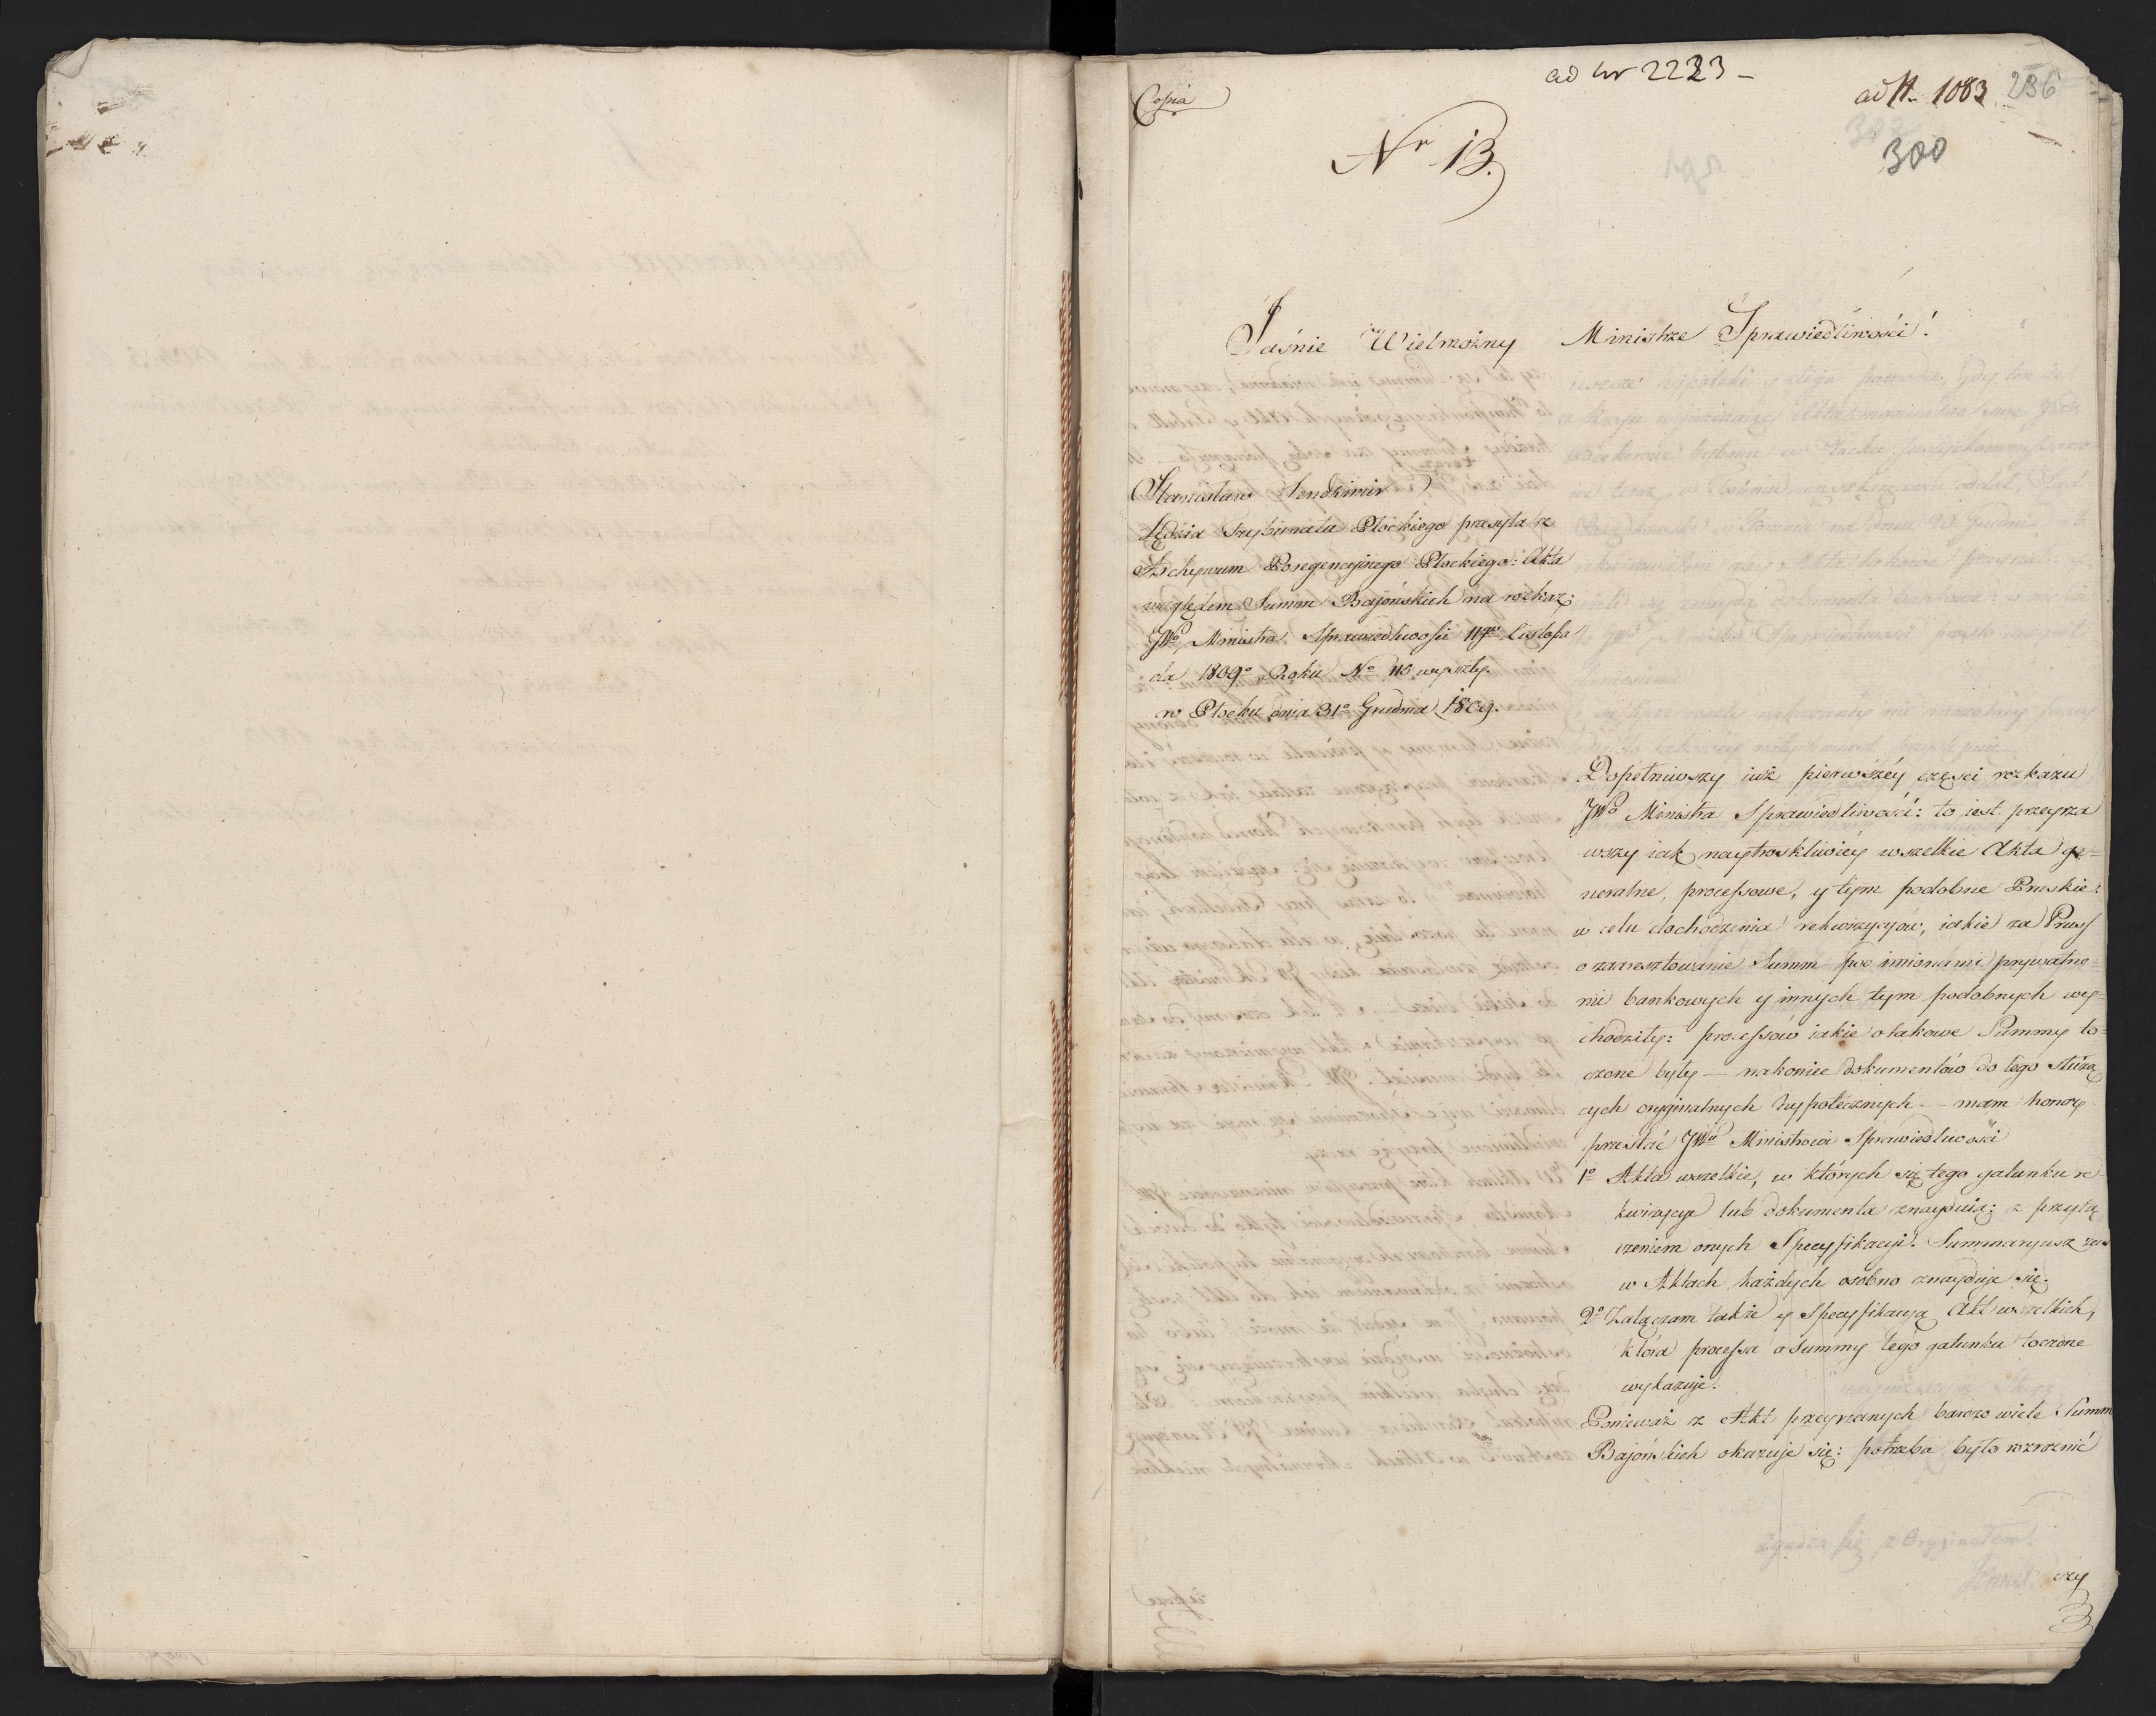 Copia
ad nr 2223 –
ad N. 1083
236
300
Nr 13.
Jaśnie Wielmożny Ministrze Sprawiedliwości!
Stanisław Sendzimir
Sędzia Trybunału Płockiego przesyła z
Archywum Poregencyjnego Płockiego: Akta
względem Summ Bajońskich na rozkaz
JWo Ministra Sprawiedliwości 11go Listopa
da 1809o Roku No 115 wyszły.
w Płocku dnia 31o Grudnia 1809.
Dopełniwszy iuż pierwszéy części rozkazu
JWo Ministra Sprawiedliwości: to iest przeyrza
wszy iak naytroskliwiéy wszelkie Akta ge=
neralne, processowe, y tym podobne Pruskie:
w celu dochodzenia rekwizycyów, iakie za Pruss
o zaaresztowanie Summ pod imionami prywatne=
mi bankowych y innych tym podobnych wy=
chodziły: processów iakie o takowe Summy to=
czone były — nakoniec dokumentów do tego służą
cych oryginalnych hypotecznych — mam honor
przesłać JWu Ministrowi Sprawiedliwości
1o Akta wszelkie, w których się tego gatunku re
kwizycye lub dokumenta znayduią: z przyłą
czeniem onych Specyfikacyi. Summaryusz zaś
w Aktach każdych osobno znayduje się.
2o Załączam także y Specyfikacyą Akt wszelkich,
która processa o Summy tego gatunku toczone
wykazuje.
Ponieważ z Akt przeyrzanych bardzo wiele Summ
Bajońskich okazuje się: potrzeba było rozroznić
czy